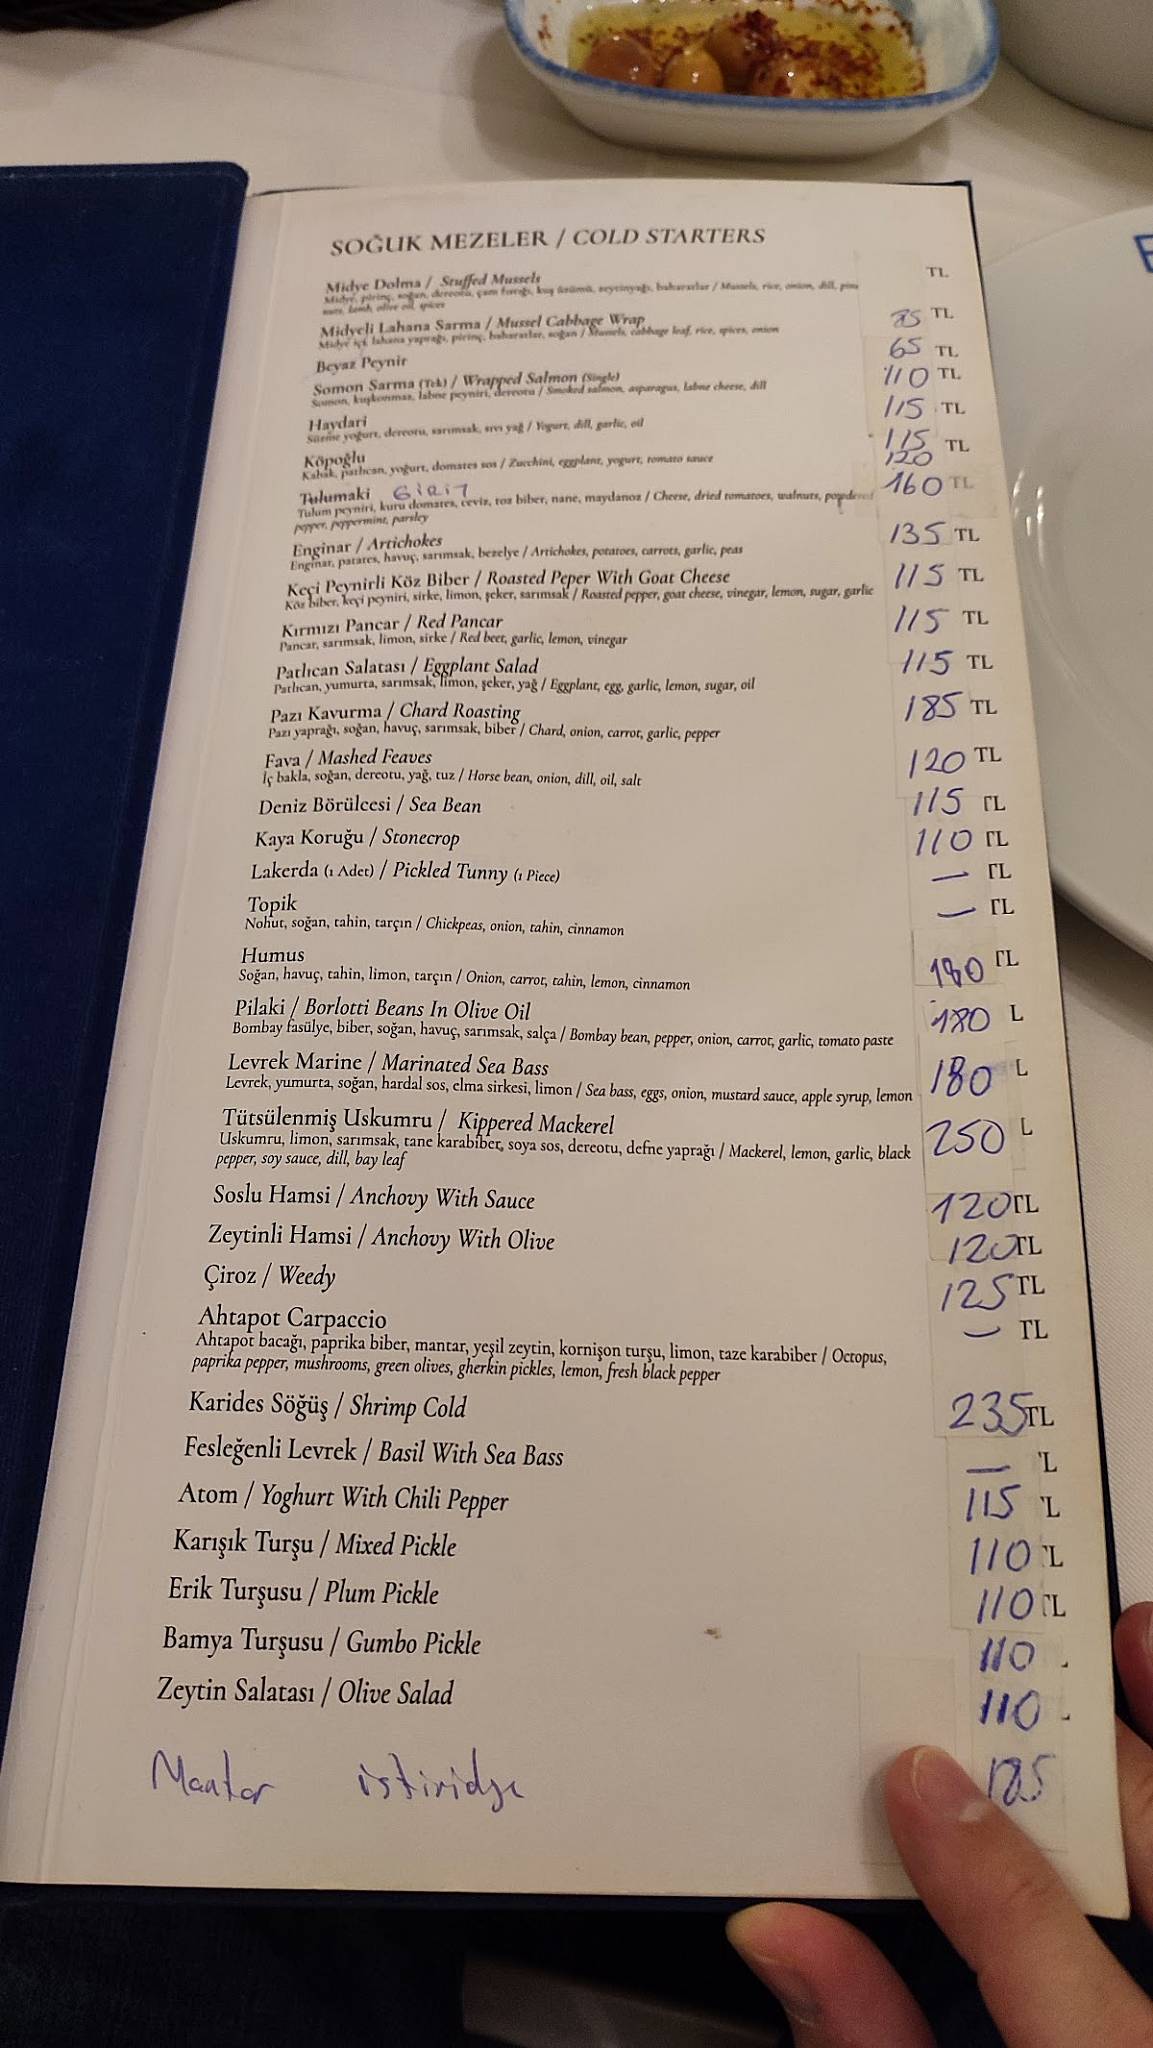 SOĞUK MEZELER / COLD STARTERS
Midye Dolma / Stuffed Mussels TL
Midye, pirinç, soğan, dereotu, çam fıstığı, kuş üzümü, zeytinyağı, baharatlar / Mussels, rice, onion, dill, pine
nuts, lamb, olive oil, spices
Midyeli Lahana Sarma / Mussel Cabbage Wrap TL
Midye içi, lahana yaprağı, pirinç, baharatlar, soğan / Mussels, cabbage leaf, rice, spices, onion
Beyaz Peynir 65 TL
Somon Sarma (Tek) / Wrapped Salmon (Single) 110 TL
Somon, kuşkonmaz, labne peyniri, dereotu / Smoked salmon, asparagus, labne cheese, dill
Haydari 115 TL
Süzme yoğurt, dereotu, sarımsak, sıvı yağ / Yogurt, dill, garlic, oil
Köpoğlu 115 120 TL
Kabak, patlıcan, yoğurt, domates sos / Zucchini, eggplant, yogurt, tomato sauce
Tulumaki GİRİT 160 TL
Tulum peyniri, kuru domates, ceviz, toz biber, nane, maydanoz / Cheese, dried tomatoes, walnuts, powdered
pepper, peppermint, parsley
Enginar / Artichokes 135 TL
Enginar, patates, havuç, sarımsak, bezelye / Artichokes, potatoes, carrots, garlic, peas
Keçi Peynirli Köz Biber / Roasted Peper With Goat Cheese 115 TL
Köz biber, keçi peyniri, sirke, limon, şeker, sarımsak / Roasted pepper, goat cheese, vinegar, lemon, sugar, garlic
Kırmızı Pancar / Red Pancar 115 TL
Pancar, sarımsak, limon, sirke / Red beet, garlic, lemon, vinegar
Patlıcan Salatası / Eggplant Salad 115 TL
Patlıcan, yumurta, sarımsak, limon, şeker, yağ / Eggplant, egg, garlic, lemon, sugar, oil
Pazı Kavurma / Chard Roasting 185 TL
Pazı yaprağı, soğan, havuç, sarımsak, biber / Chard, onion, carrot, garlic, pepper
Fava / Mashed Feaves 120 TL
İç bakla, soğan, dereotu, yağ, tuz / Horse bean, onion, dill, oil, salt
Deniz Börülcesi / Sea Bean 115 TL
Kaya Koruğu / Stonecrop 110 TL
Lakerda (1 Adet) / Pickled Tunny (1 Piece) — TL
Topik — TL
Nohut, soğan, tahin, tarçın / Chickpeas, onion, tahin, cinnamon
Humus 180 TL
Soğan, havuç, tahin, limon, tarçın / Onion, carrot, tahin, lemon, cinnamon
Pilaki / Borlotti Beans In Olive Oil 180 L
Bombay fasülye, biber, soğan, havuç, sarımsak, salça / Bombay bean, pepper, onion, carrot, garlic, tomato paste
Levrek Marine / Marinated Sea Bass 180 L
Levrek, yumurta, soğan, hardal sos, elma sirkesi, limon / Sea bass, eggs, onion, mustard sauce, apple syrup, lemon
Tütsülenmiş Uskumru / Kippered Mackerel 250 L
Uskumru, limon, sarımsak, tane karabiber, soya sos, dereotu, defne yaprağı / Mackerel, lemon, garlic, black
pepper, soy sauce, dill, bay leaf
Soslu Hamsi / Anchovy With Sauce 120 TL
Zeytinli Hamsi / Anchovy With Olive 120 TL
Çiroz / Weedy 125 TL
Ahtapot Carpaccio — TL
Ahtapot bacağı, paprika biber, mantar, yeşil zeytin, kornişon turşu, limon, taze karabiber / Octopus,
paprika pepper, mushrooms, green olives, gherkin pickles, lemon, fresh black pepper
Karides Söğüş / Shrimp Cold 235 TL
Fesleğenli Levrek / Basil With Sea Bass — L
Atom / Yoghurt With Chili Pepper 115 L
Karışık Turşu / Mixed Pickle 110 TL
Erik Turşusu / Plum Pickle 110 TL
Bamya Turşusu / Gumbo Pickle 110
Zeytin Salatası / Olive Salad 110
Mantar istiridye 185